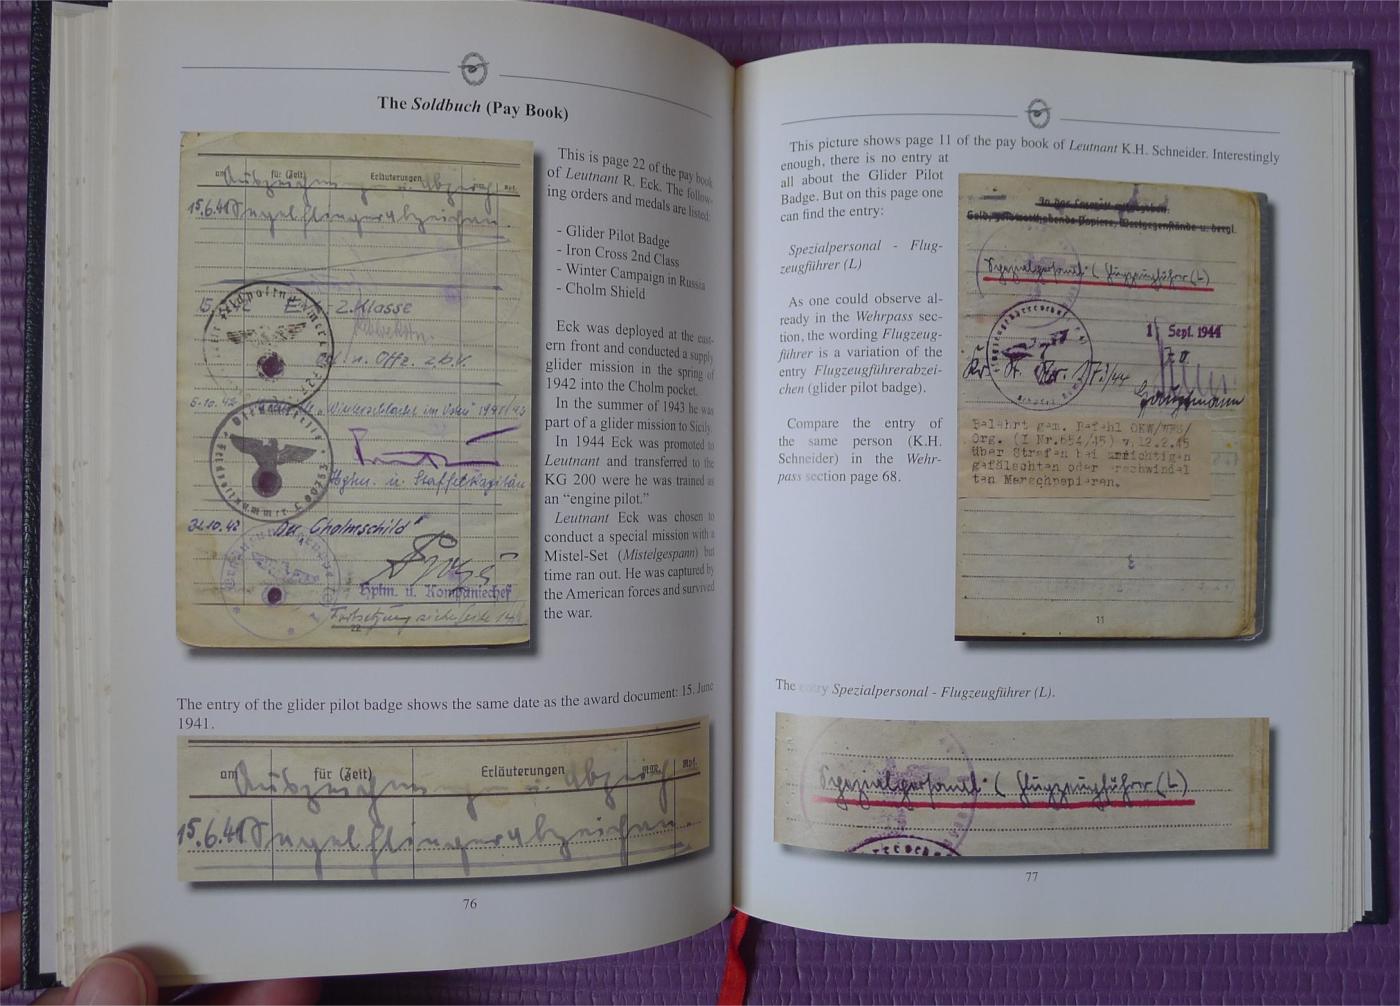 The Soldbuch (Pay Book)
am für (Zeit) Erläuterungen
15.6.41 Segelflugerabzeichen
2. Klasse
5.10.42
Hptm. u. Staffelkapitän
31.10.42 Der "Cholmschild"
Hptm. u. Kompaniechef
Fortsetzung siehe Seite
22
This is page 22 of the pay book
of Leutnant R. Eck. The follow-
ing orders and medals are listed:
- Glider Pilot Badge
- Iron Cross 2nd Class
- Winter Campaign in Russia
- Cholm Shield
Eck was deployed at the east-
ern front and conducted a supply
glider mission in the spring of
1942 into the Cholm pocket.
In the summer of 1943 he was
part of a glider mission to Sicily.
In 1944 Eck was promoted to
Leutnant and transferred to the
KG 200 were he was trained as
an “engine pilot.”
Leutnant Eck was chosen to
conduct a special mission with a
Mistel-Set (Mistelgespann) but
time ran out. He was captured by
the American forces and survived
the war.
The entry of the glider pilot badge shows the same date as the award document: 15. June
1941.
am für (Zeit) Erläuterungen
15.6.41 Segelflugerabzeichen
76
This picture shows page 11 of the pay book of Leutnant K.H. Schneider. Interestingly
enough, there is no entry at
all about the Glider Pilot
Badge. But on this page one
can find the entry:
Spezialpersonal - Flug-
zeugführer (L)
As one could observe al-
ready in the Wehrpass sec-
tion, the wording Flugzeug-
führer is a variation of the
entry Flugzeugführerabzei-
chen (glider pilot badge).
Compare the entry of
the same person (K.H.
Schneider) in the Wehr-
pass section page 68.
Spezialpersonal: (Flugzeugführer (L)
1. Sept. 1944
Belehrt gem. Befehl OKW/WFS/
Org. (I Nr.654/45) v. 12.2.45
über Strafen bei unrichtigen
gefälschten oder erschwindel
ten Marschpapieren.
11
The entry Spezialpersonal - Flugzeugführer (L).
Spezialpersonal: (Flugzeugführer (L)
77